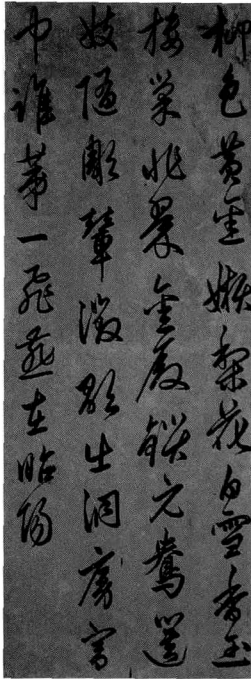 柳色黄金嫩梨花白雪香玉
樓巢翡翠金殿鎖鴛鴦選
妓隨彫輦徵歌出洞房宫
中誰第一飛燕在昭陽